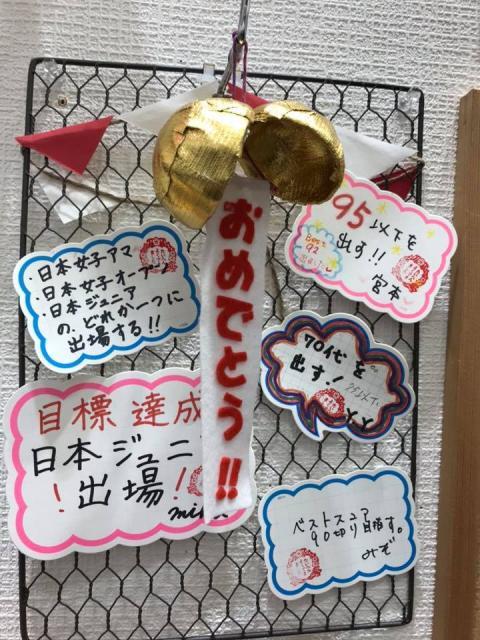 おめでとう!!
95以下を
出す!!
宮本
Best
92
・日本女子アマ
・日本女子オープン
・日本ジュニア
の、どれか一つに
出場する!!
70代を
出す!
目標達成
日本ジュニ
!出場!
miku
ベストスコア
90切り目指す。
みぞ